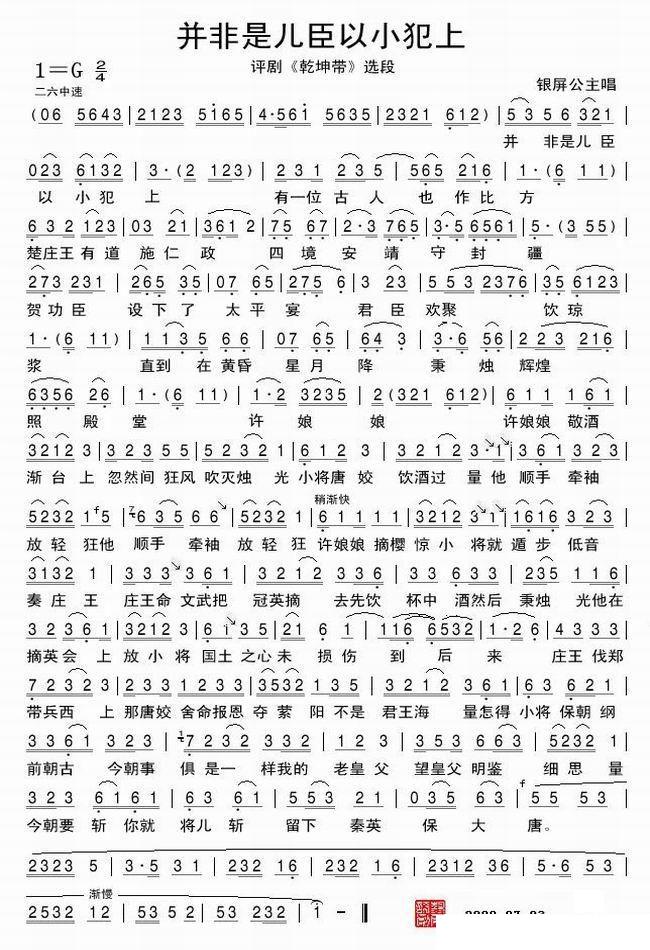 并非是儿臣以小犯上
1=G 2/4
评剧《乾坤带》选段
二六中速
银屏公主唱
(06 5643 | 2123 5165 | 4·561 5635 | 2321 612) | 5 3 5 6 321 |
并 非是儿 臣
023 6132 | 3·(2 123) | 231 235 | 565 216 | 1·(6 11) |
以 小 犯 上 有一位 古 人 也 作 比 方
632 123 | 03 21 | 3612 | 75 67 | 2·3 765 | 3·5 6561 | 5·(3 55) |
楚庄王 有 道 施 仁 政 四 境 安 靖 守 封 疆
273 231 | 265 35 | 07 65 | 275 6 | 3 23 | 553 2376 | 35 6123 |
贺功臣 设 下 了 太 平 宴 君 臣 欢聚 饮 琼
1·(6 11) | 1135 66 | 07 65 | 64 3 | 3·6 56 | 223 216 |
浆 直到 在 黄昏 星 月 降 秉 烛 辉煌
6356 26 | 1·(6 11) | 1·2 3235 | 2(321 612) | 611 161 |
照 殿 堂 许 娘 娘 许娘娘 敬酒
3212 3 | 32355 | 5232 1 | 612 3 | 3212 3·1 | 361 323 |
渐 台 上 忽然间 狂风 吹灭烛 光 小将唐 姣 饮酒过 量 他 顺手 牵袖
稍渐快
5232 15 | 6356 6 | 5232 1 | 6111 11 | 3212 3 1 | 1616 323 |
放 轻 狂他 顺手 牵袖 放 轻 狂 许娘娘 摘樱 惊 小 将就 遁 步 低音
3132 1 | 333 361 | 3212 336 | 33 633 | 235 116 |
奏 庄 王 庄王命 文武把 冠英摘 去先饮 杯中 酒然后 秉烛 光他在
32361 | 3212 3 | 6 1 35 | 21 6 1 | 116 6532 | 1·2 6 | 4333 |
摘英会 上 放 小 将 国土 之心未 损 伤 到 后 来 庄王 伐郑
72323 | 233 1233 | 3532 135 | 3212 361 | 63 621 |
带兵西 上 那唐姣 舍命报恩 夺 萦 阳 不是 君王海 量怎得 小将 保朝 纲
3361 323 | 7232 3 | 3232 33 | 353 663 | 5232 1 |
前朝古 今朝事 俱 是一 样我的 老皇 父 望皇父 明鉴 细 思 量
323 6161 | 63 61 | 553 21 | 035 63 | 55 53 |
今朝要 斩 你就 将儿 斩 留下 秦英 保 大 唐。
2323 5 | 3·5 31 | 232 16 | 232 16 | 2312 36 | 5·6 53 |
渐慢
2532 12 | 53 52 | 53 232 | 1 - ‖